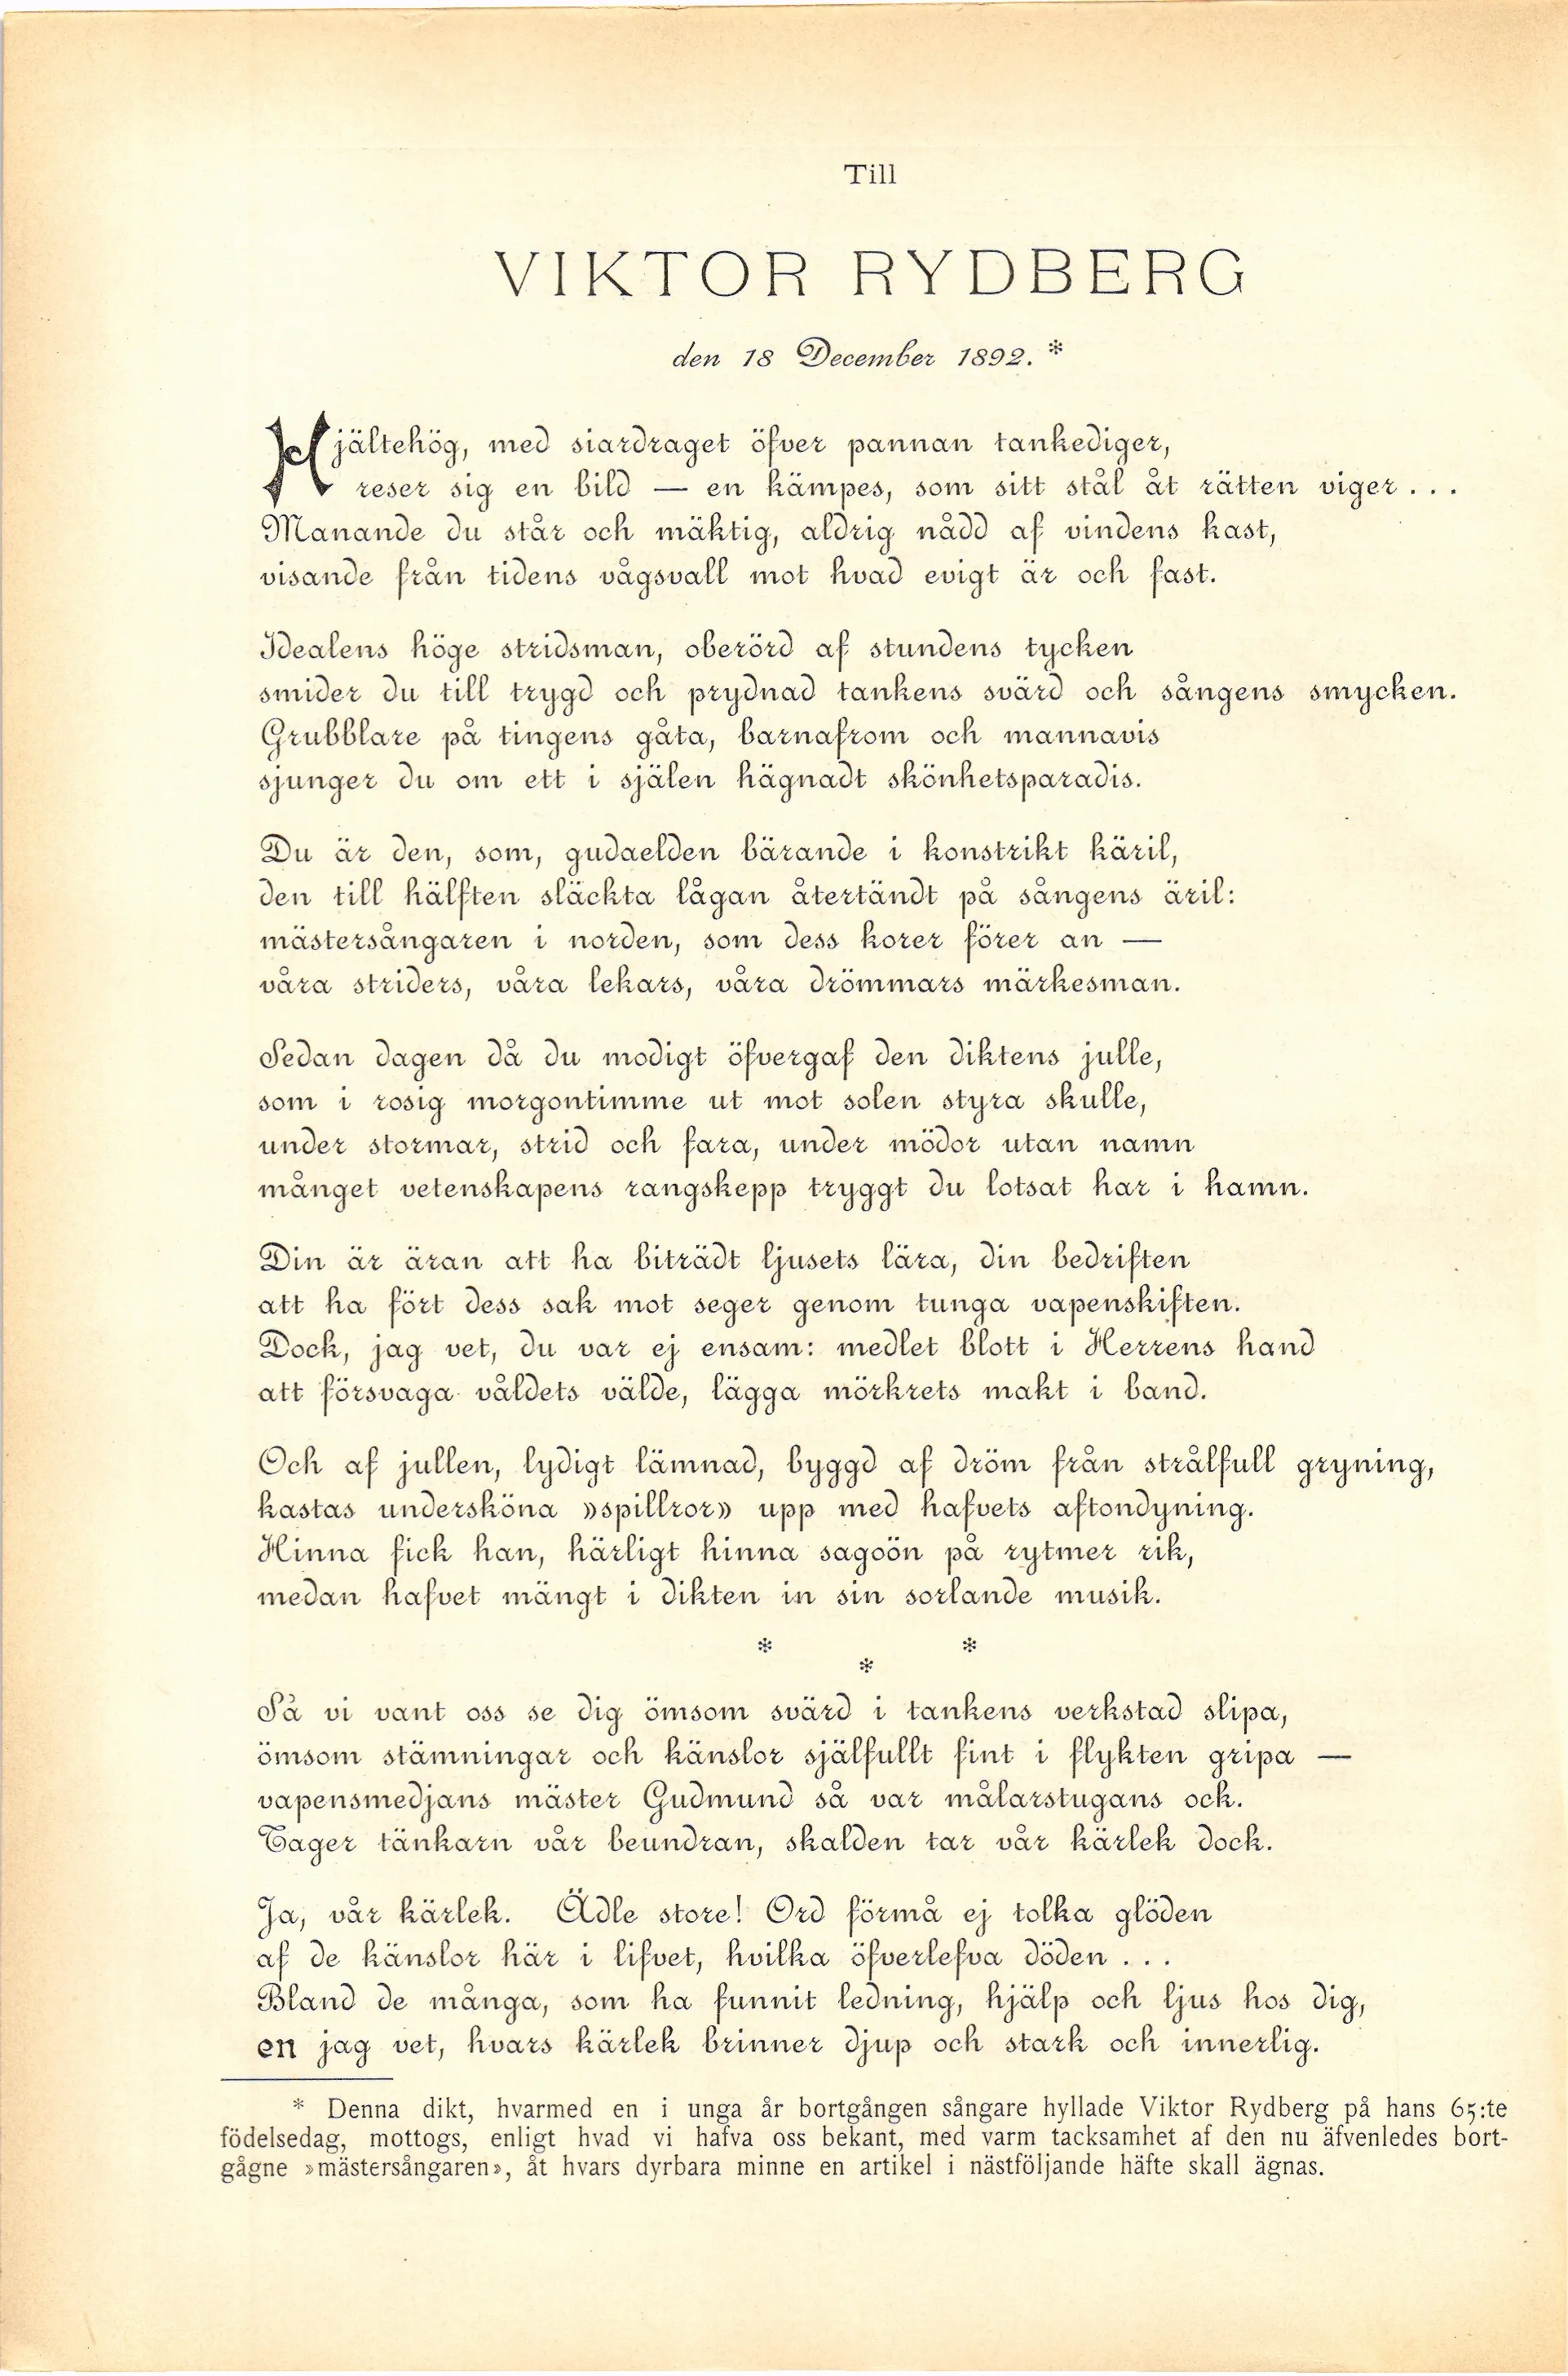 Till
VIKTOR RYDBERG
den 18 December 1892. *
Hjältehög, med siardraget öfver pannan tankediger,
reser sig en bild — en kämpes, som sitt stål åt rätten viger . . .
Manande du står och mäktig, aldrig nådd af vindens kast,
visande från tidens vågsvall mot hvad evigt är och fast.
Idealens höge stridsman, oberörd af stundens tycken
smider du till trygd och prydnad tankens svärd och sångens smycken.
Grubblare på tingens gåta, barnafrom och mannavis
sjunger du om ett i själen hägnadt skönhetsparadis.
Du är den, som, gudaelden bärande i konstrikt käril,
den till hälften släckta lågan återtändt på sångens äril:
mästersångaren i norden, som dess korer förer an —
våra striders, våra lekars, våra drömmars märkesman.
Sedan dagen då du modigt öfvergaf den diktens julle,
som i rosig morgontimme ut mot solen styra skulle,
under stormar, strid och fara, under mödor utan namn
månget vetenskapens rangskepp tryggt du lotsat har i hamn.
Din är äran att ha biträdt ljusets lära, din bedriften
att ha fört dess sak mot seger genom tunga vapenskiften.
Dock, jag vet, du var ej ensam: medlet blott i Herrens hand
att försvaga våldets välde, lägga mörkrets makt i band.
Och af jullen, lydigt lämnad, byggd af dröm från strålfull gryning,
kastas undersköna »spillror» upp med hafvets aftondyning.
Hinna fick han, härligt hinna sagoön på rytmer rik,
medan hafvet mängt i dikten in sin sorlande musik.
* *
*
Så vi vant oss se dig ömsom svärd i tankens verkstad slipa,
ömsom stämningar och känslor själfullt fint i flykten gripa —
vapensmedjans mäster Gudmund så var målarstugans ock.
Eager tänkarn vår beundran, skalden tar vår kärlek dock.
Ja, vår kärlek. Ädle store! Ord förmå ej tolka glöden
af de känslor här i lifvet, hvilka öfverlefva döden . . .
Bland de många, som ha funnit ledning, hjälp och ljus hos dig,
en jag vet, hvars kärlek brinner djup och stark och innerlig.
* Denna dikt, hvarmed en i unga år bortgången sångare hyllade Viktor Rydberg på hans 65:te
födelsedag, mottogs, enligt hvad vi hafva oss bekant, med varm tacksamhet af den nu äfvenledes bort-
gågne »mästersångaren», åt hvars dyrbara minne en artikel i nästföljande häfte skall ägnas.